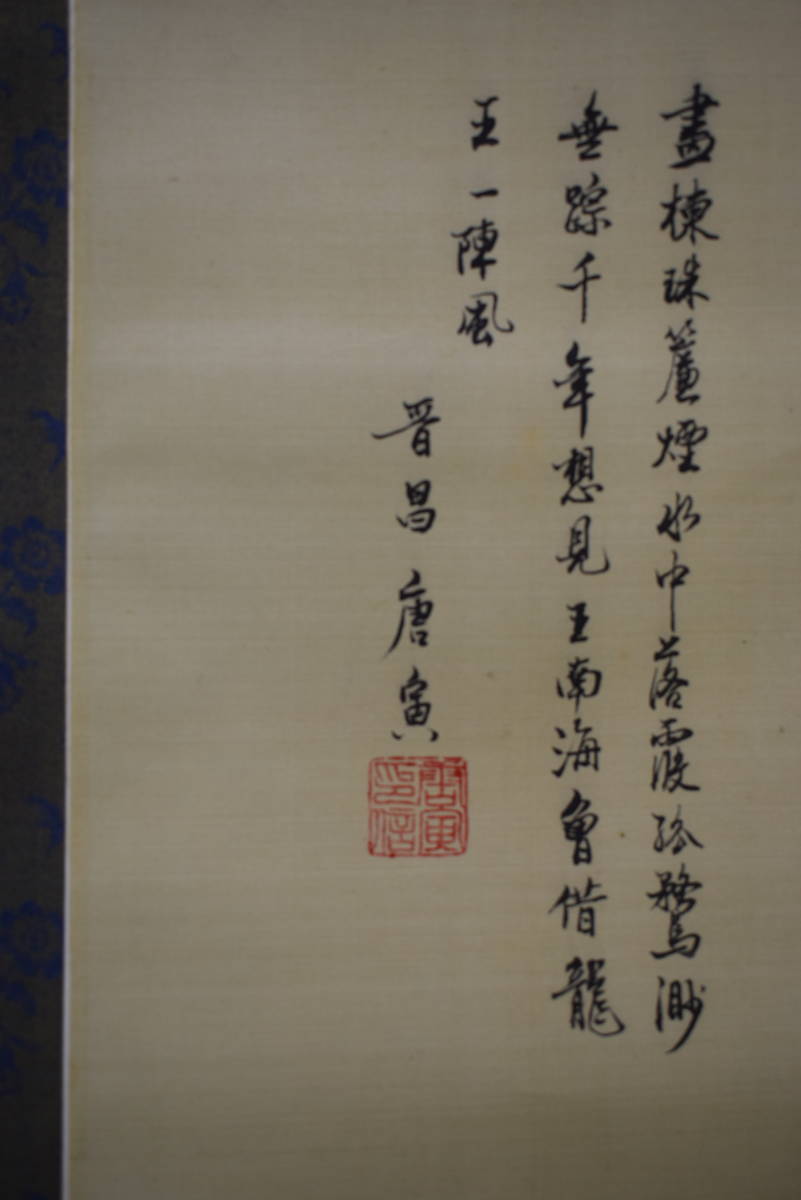 畫棟珠簾煙水中落霞孤鶩渺
無踪千年想見王南海曾借龍
王一陣風
晉昌唐寅
唐寅印信